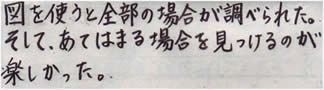 図を使うと全部の場合が調べられた。
そして、あてはまる場合を見つけるのが
楽しかった。